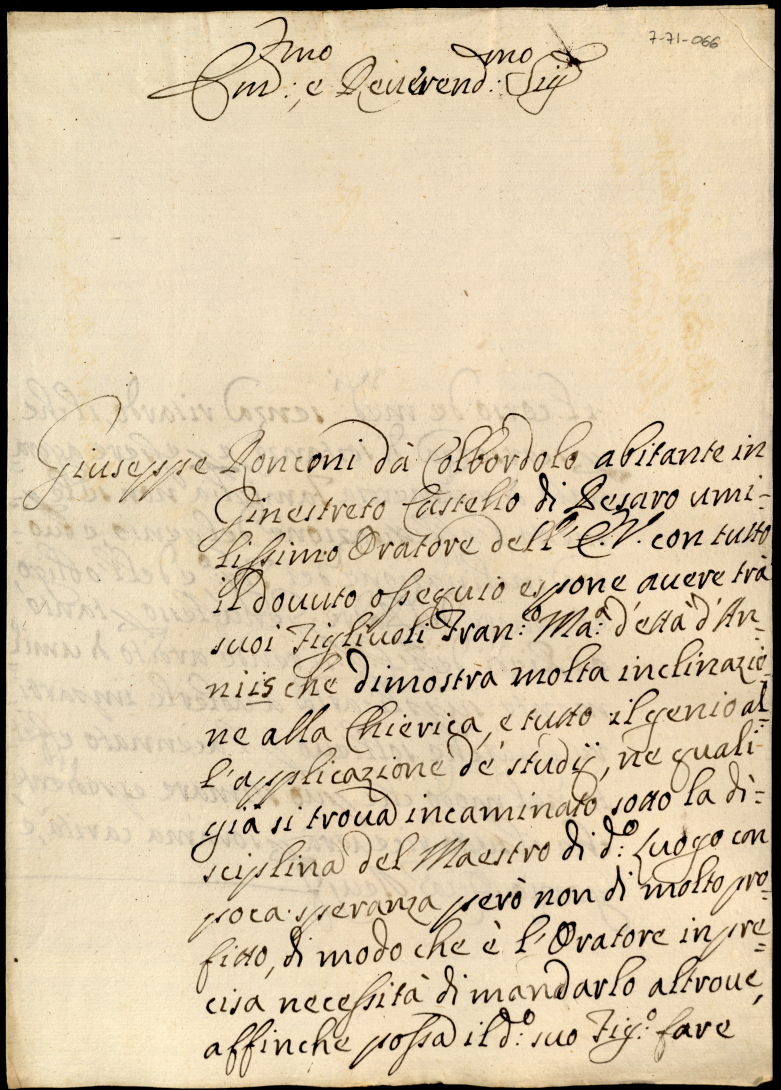 7-71-066
Em:mo e Reverend:mo Sig.r
Giuseppe Ronconi da Colbordolo abitante in
Ginestreto Castello di Pesaro umi=
lissimo Oratore dell' E.V. con tutto
il dovuto ossequio espone avere trà
suoi Figlivoli Fran:o Ma:a d'ettà d'An=
ni 15 che dimostra molta inclinazio=
ne alla Chierica, e tutto il genio al=
l'applicazione de' studij, ne quali
già si trova incaminato sotto la di=
sciplina del Maestro di d:o Luogo con
poca speranza però non di molto pro=
fitto, di modo che è l'Oratore in pre=
cisa necessità di mandarlo altrove,
affinche possa il d:o suo Fig:o fare